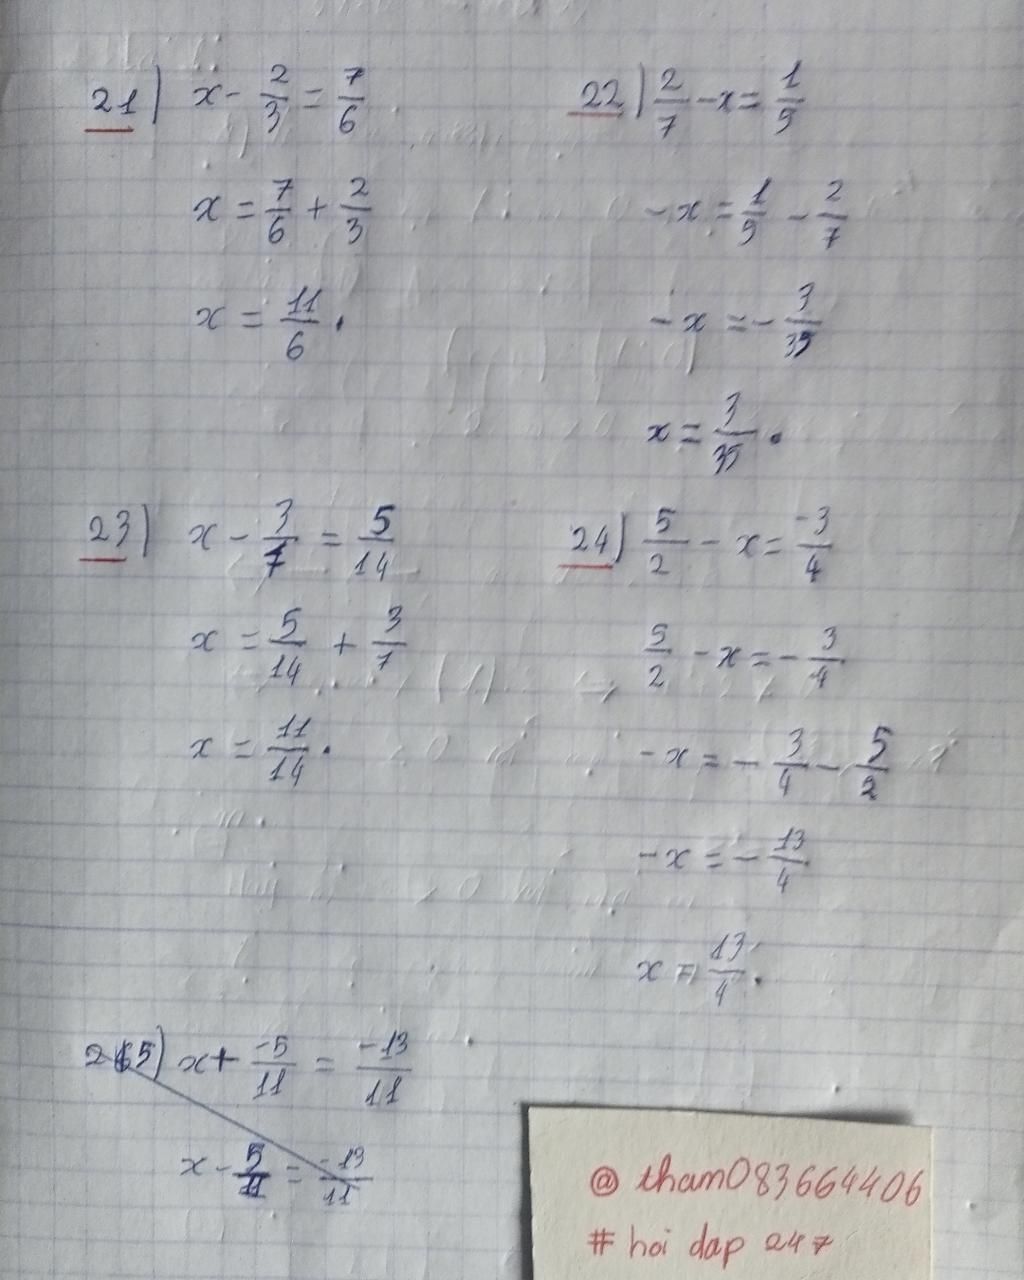 21) x - 2/3 = 7/6
x = 7/6 + 2/3
x = 11/6 .
22) 2/7 - x = 1/5
- x = 1/5 - 2/7
- x = - 3/35
x = 3/35 .
23) x - 3/7 = 5/14
x = 5/14 + 3/7
x = 11/14 .
24) 5/2 - x = -3/4
5/2 - x = - 3/4
- x = - 3/4 - 5/2
- x = - 13/4
x = 13/4 .
x + -5/11 = -13/11
x - 5/11 = -13/11
@ tham083664406
# hoi dap 247